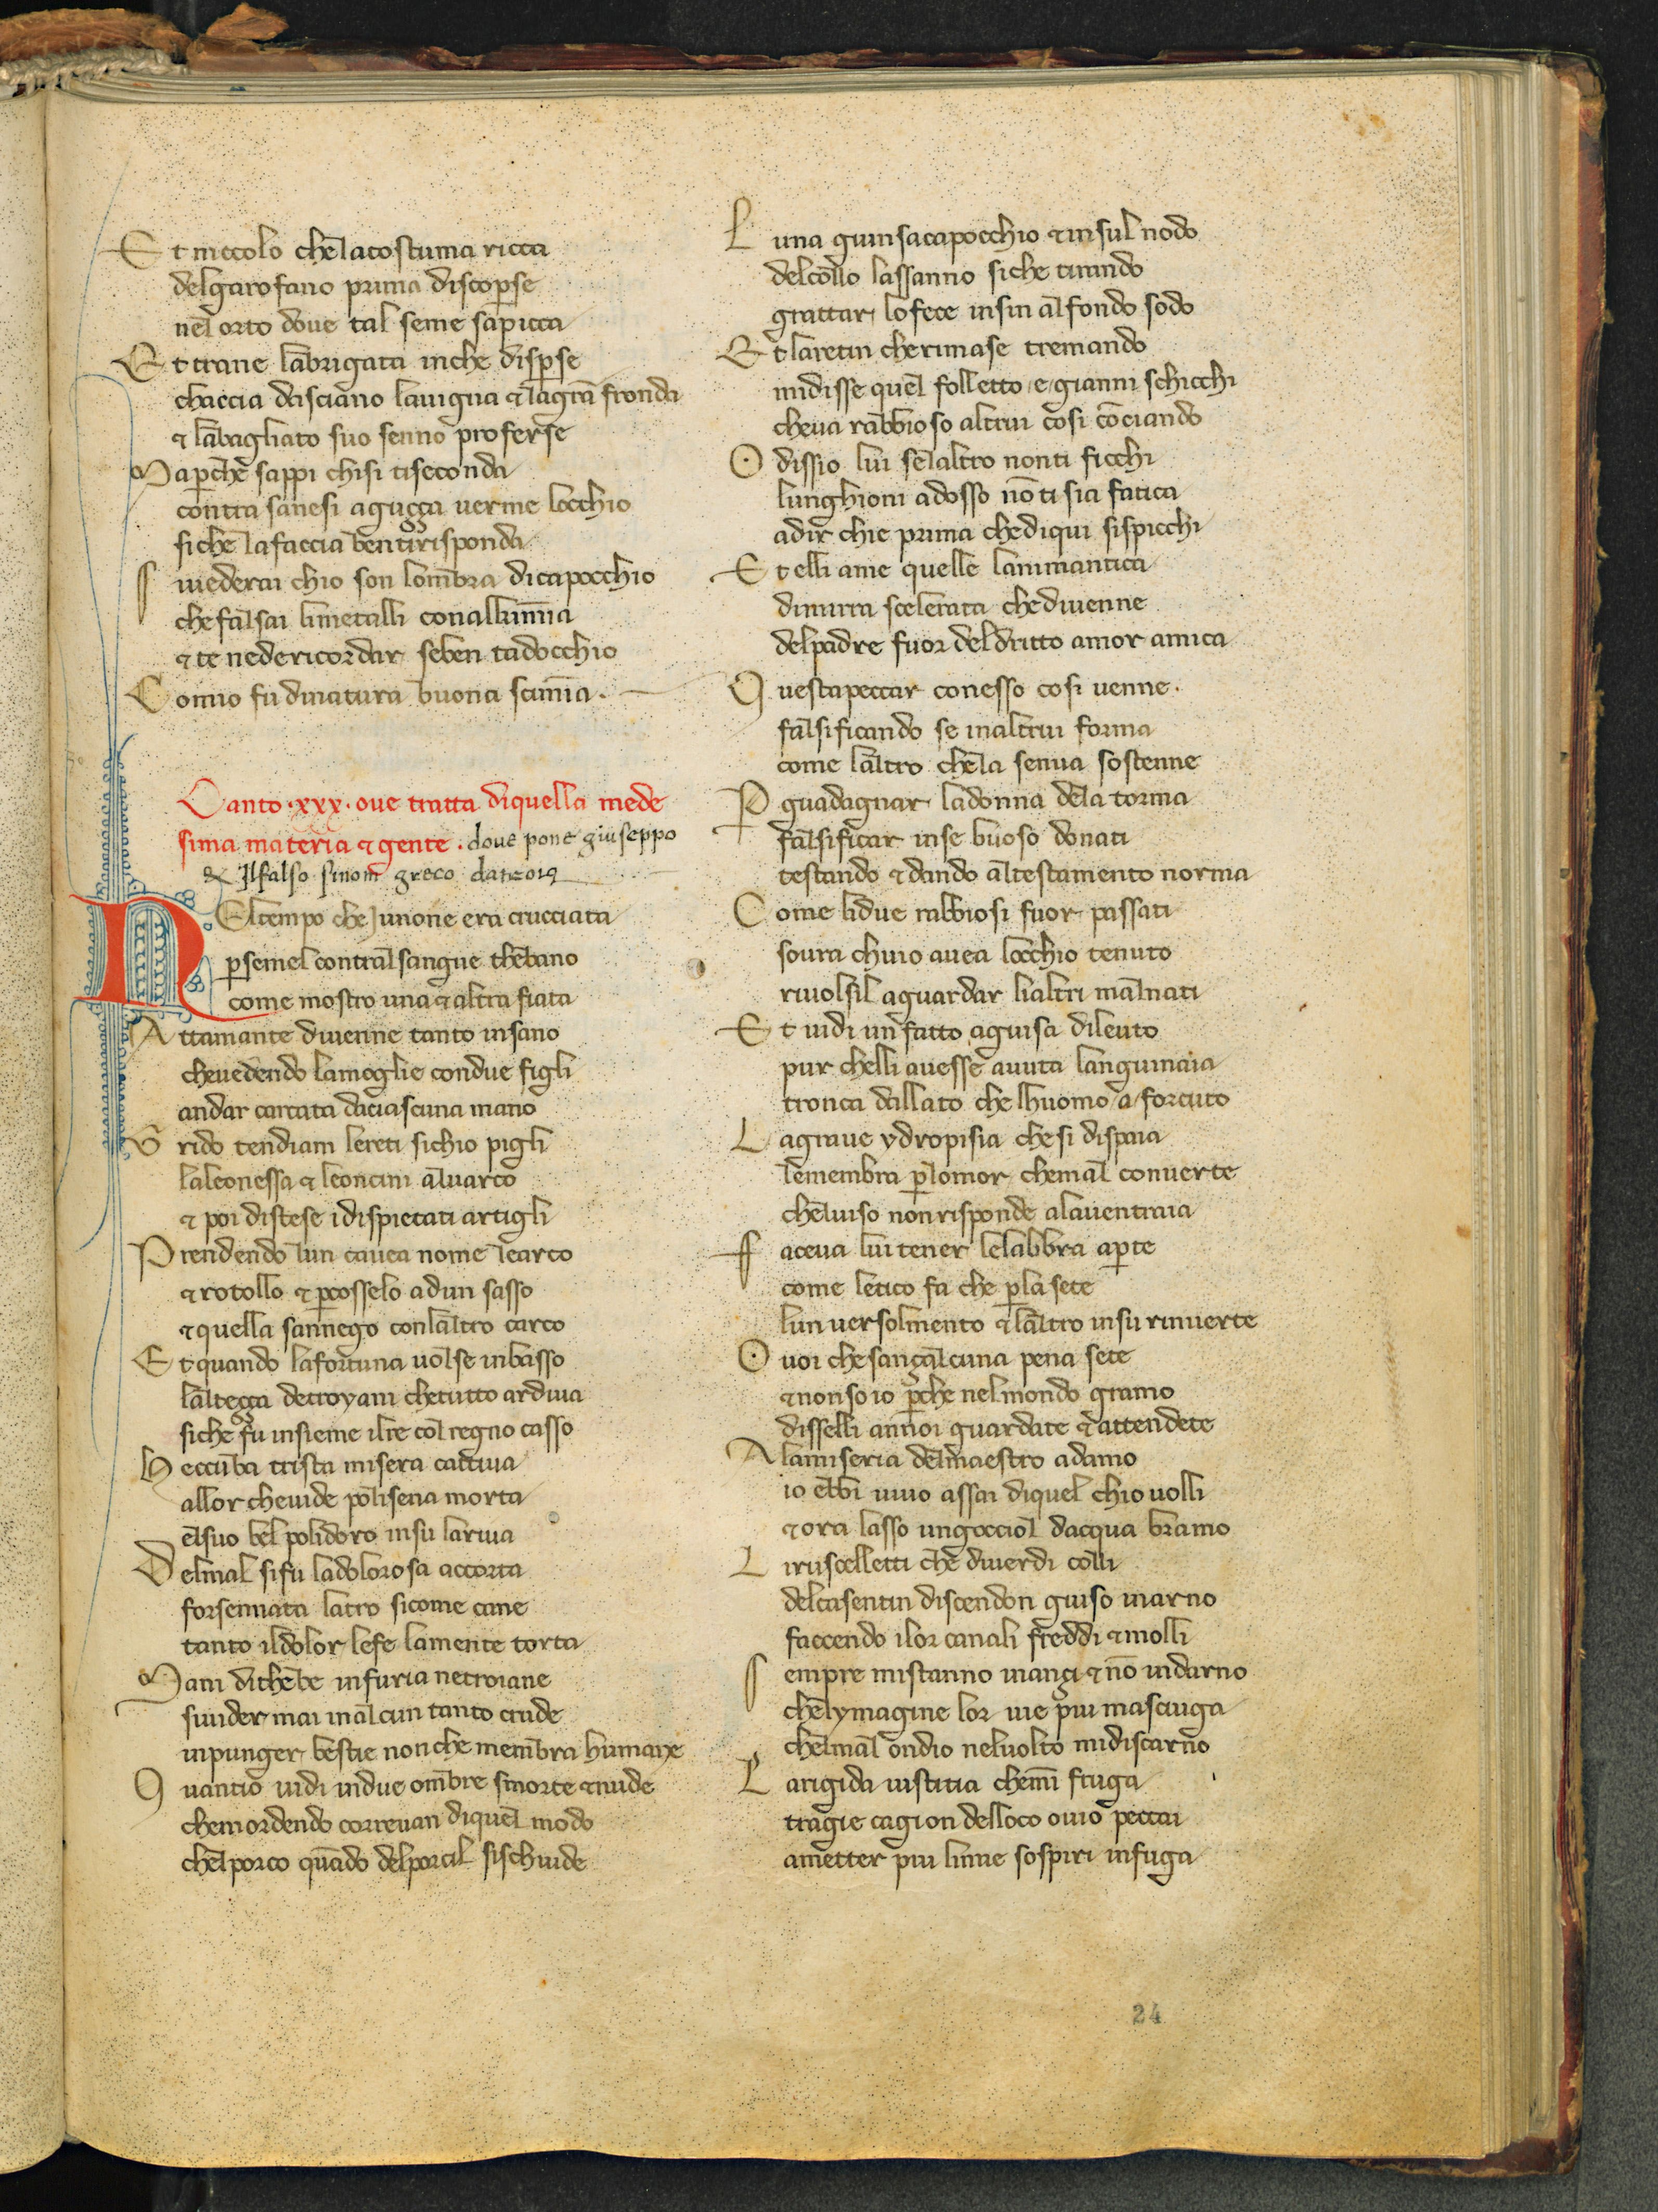 Et niccolo chēlacostuma ricca
delgarofano prima discop̄se
nel orto doue tal seme sapicca
Et trane lābrigata inche disp̄se
chaccia dasciano lauigna ⁊ lagrā fronda
⁊ lābagliato suo senno proferse
Ma p̄che sappi chisi tiseconda
contra sanesi aguçça uerme locchio
siche lafaccia bentirisponda
Siuederai chio son lombra dicapocchio
che falsai limetalli conalkimia
⁊ te nedericordar seben tadocchio
Comio fu dinatura buona scimia.
Canto .xxx. oue tratta diquella mede
sima materia ⁊ gente . doue pone giuseppo
⁊ Ilfalso sinon greco datroia
NEltempo che Junone era crucciata
p semel contralsangue thebano
come mostro una ⁊ altra fiata
Attamante diuenne tanto insano
cheuedendo lamoglie condue figli
andar carcata daciascuna mano
Grido tendiam lereti sichio pigli
laleonessa ⁊ leoncini aluarco
⁊ poi distese idispietati artigli
Prendendo lun cauea nome learco
⁊ rotollo ⁊ p̄cosselo adun sasso
⁊ quella sannego conlaltro carco
Et quando lafortuna uolse inbasso
lalteçça detroyani chetutto ardiua
siche fu insieme ilre col regno casso
Heccuba trista misera cattiua
allor cheuide polisena morta
elsuo bel polidoro insu lariua
Delmal sifu ladolorosa accorta
forsennata latro sicome cane
tanto ildolor lefe lamente torta
Mani dithebe infuria netroiane
siuider mai inalcun tanto crude
inpunger bestie nonche membra humane
Quantio uidi indue ombre smorte ⁊ nude
chemordendo correuan diquel modo
chelporco quādo delporcil sischiude
Luna giunsacapocchio ⁊ insul nodo
delcollo lassanno siche tirando
grattar lofece insin alfondo sodo
Et laretin cherimase tremando
midisse quel folletto e gianni schicchi
cheua rabbioso altrui cosi cōciando
O dissio lui selaltro nonti ficchi
lunghioni adosso nō ti sia fatica
adir chie prima chediqui sispicchi
Et elli ame quelle lanimantica
dimirra scelerata chediuenne
delpadre fuor deldritto amor amica
Questapeccar conesso cosi uenne.
falsificando se inaltrui forma
come laltro chela senua sostenne
P guadagnar ladonna dela torma
falsificar inse buoso donati
testando ⁊ dando altestamento norma
Come lidue rabbiosi fuor passati
soura chuio auea locchio tenuto
riuolsil aguardar lialtri malnati
Et uidi un fatto aguisa dileuto
pur chelli auesse auuta languinaia
tronca dallato chelhuomo a forcuto
Lagraue ydropisia chesi dispaia
lemembra p̄lomor chemal conuerte
cheluiso nonrisponde alauentraia
Faceua lui tener lelabbra ap̄te
come letico fa che p̄la sete
lun uersolmento ⁊ laltro insu rinuerte
O uoi chesançalcuna pena sete
⁊ nonso io p̄che nelmondo gramo
disselli annoi guardate ⁊ attendete
Alamiseria delmaestro adamo
io ebbi uiuo assai diquel chio uolli
⁊ ora lasso ungocciol dacqua bramo
Liruscelletti che diuerdi colli
delcasentin discendon giuso inarno
faccendo ilor canali freddi ⁊ molli
Sempre mistanno inançi ⁊ nō indarno
chelymagine lor uie piu masciuga
chelmal ondio neluolto midiscarno
Larigida iustitia chemi fruga
tragie cagion delloco ouio peccai
ametter piu limie sospiri infuga
24